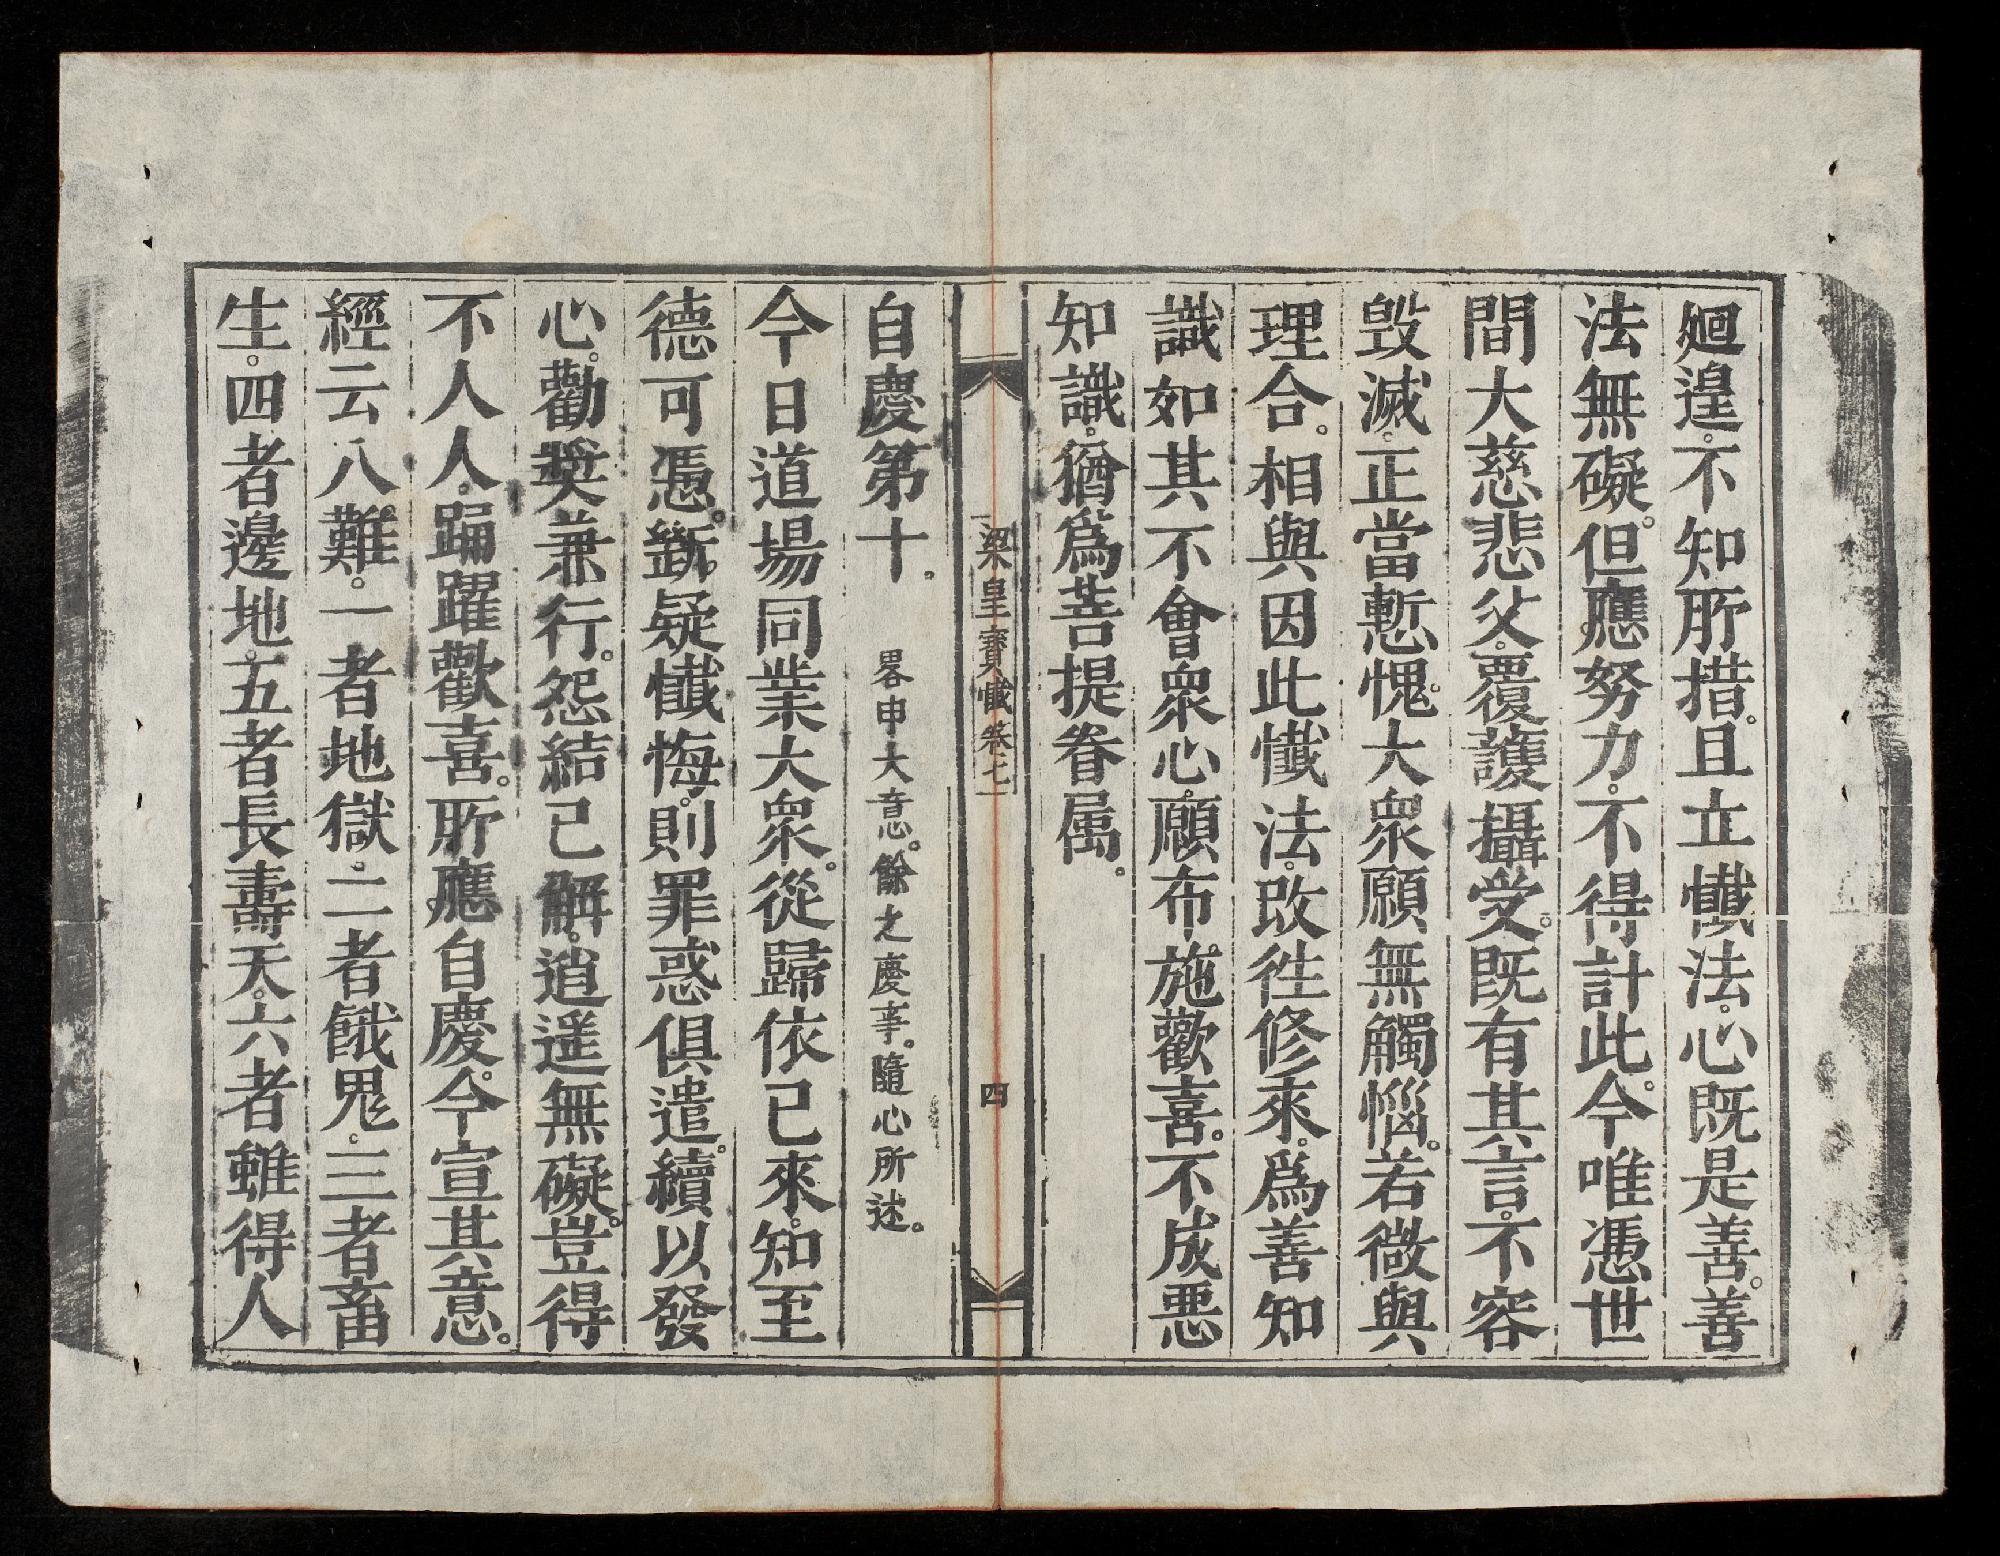 廻遑。不知所措。且立懺法。心既是善。善
法無礙。但應努力。不得計此。今唯憑世
間大慈悲父。覆護攝受。既有其言。不容
毀滅。正當慙愧。大眾願無觸惱。若微與
理合。相與因此懺法。改徃修來。為善知
識如其不會眾心。願布施歡喜。不成惡
知識。猶為菩提眷属。
梁皇寶懺卷七
四
自慶第十。 畧申大意。餘之慶事。隨心所述。
今日道場同業大眾。從歸依已來。知至
德可憑。斷疑懺悔。則罪惑俱遣。續以發
心。勸奬兼行。怨結已解。逍遥無礙。豈得
不人人踊躍歡喜。所應自慶。今宣其意。
經云八難。一者地獄。二者餓鬼。三者畜
生。四者邊地。五者長壽天。六者雖得人